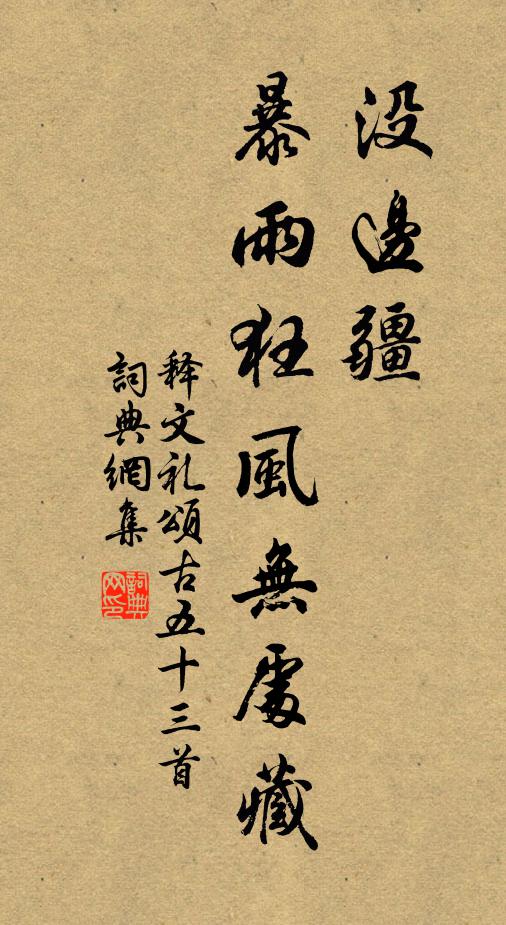 没邊疆
暴雨狂風無處藏
释文礼頌古五十三首
詞典網集
詞典
网印